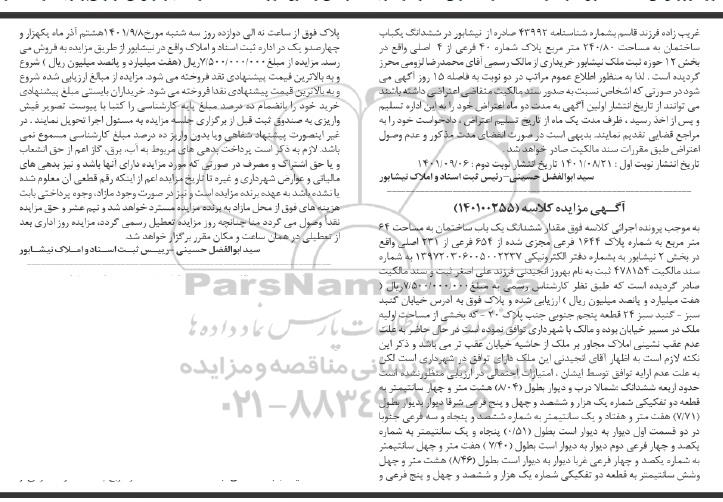 غریب زاده فرزند قاسم بشماره شناسنامه ۴۳۹۹۲ صادره از نیشابور در ششدانگ یکباب
ساختمان به مساحت ۲۴۰/۸۰ متر مربع پلاک شماره ۴۰ فرعی از ۴ اصلی واقع در
بخش ۱۲ حوزه ثبت ملک نیشابور خریداری از مالک رسمی آقای محمدرضا لزومی محرز
گردیده است . لذا به منظور اطلاع عموم مراتب در دو نوبت به فاصله ۱۵ روز آگهی می
شود در صورتی که اشخاص نسبت به صدور سند مالکیت متقاضی اعتراضی داشته باشند
می توانند از تاریخ انتشار اولین آگهی به مدت دو ماه اعتراض خود را به این اداره تسلیم
و پس از اخذ رسید ، ظرف مدت یک ماه از تاریخ تسلیم اعتراض ، دادخواست خود را به
مراجع قضایی تقدیم نمایند. بدیهی است در صورت انقضای مدت مذکور و عدم وصول
اعتراض طبق مقررات سند مالکیت صادر خواهد شد.
تاریخ انتشار نوبت اول : ۱۴۰۱/۰۸/۲۱ تاریخ انتشار نوبت دوم : ۱۴۰۱/۰۹/۰۶
سید ابوالفضل حسینی- رئیس ثبت اسناد و املاک نیشابور
آگـــهی مزایده کلاسه (۱۴۰۱۰۰۲۵۵)
به موجب پرونده اجرائی کلاسه فوق مقدار ششدانگ یک باب ساختمان به مساحت ۶۴
متر مربع به شماره پلاک ۱۶۴۴ فرعی مجزی شده از ۶۵۴ فرعی از ۲۳۱ اصلی واقع
در بخش ۲ نیشابور به بشماره دفتر الکترونیکی ۱۳۹۷۲۰۳۰۶۰۰۵۰۰۲۲۳۷ به شماره
سند مالکیت ۴۷۸۱۵۴ ثبت به نام بهروز انجیدنی فرزند علی اصغر ثبت و سند مالکیت
صادر گردیده است که طبق نظر کارشناس رسمی به مبلغ ۷/۵۰۰/۰۰۰/۰۰۰ریال (
هفت میلیارد و پانصد میلیون ریال ) ارزیابی شده و پلاک فوق به آدرس خیابان گنبد
سبز - گنبد سبز ۲۴ قطعه پنجم جنوبی جنب پلاک ۲۰ - که بخشی از مساحت اولیه
ملک در مسیر خیابان بوده و مالک با شهرداری توافق نموده است در حال حاضر به علت
عدم عقب نشینی املاک مجاور بر ملک از حاشیه خیابان عقب تر می باشد و ذکر این
نکته لازم است به اظهار آقای انجیدنی این ملک دارای توافق در شهرداری است لکن
به علت عدم ارایه توافق توسط ایشان ، امتیازات احتمالی در ارزیابی منظور نشده است
حدود اربعه ششدانگ :شمالا درب و دیوار بطول (۸/۰۴) هشت متر و چهار سانتیمتر به
قطعه دو تفکیکی شماره یک هزار و ششصد و چهل و پنج فرعی شرقا دیوار بدیوار بطول
(۷/۷۱) هفت متر و هفتاد و یک سانتیمتر به شماره ششصد و پنجاه و سه فرعی جنوبا
در دو قسمت اول دیوار به دیوار است بطول (۰/۵۱) پنجاه و یک سانتیمتر به شماره
یکصد و چهار فرعی دوم دیوار به دیوار است بطول (۷/۴۰) هفت متر و چهل سانتیمتر
به شماره یکصد و چهار فرعی غربا دیوار به دیوار است بطول (۸/۴۶) هشت متر و چهل
وشش سانتیمتر به قطعه دو تفکیکی شماره یک هزار و ششصد و چهل و پنج فرعی و
پلاک فوق از ساعت نه الی دوازده روز سه شنبه مورخ۱۴۰۱/۹/۸هشتم آذر ماه یکهزار و
چهارصدو یک در اداره ثبت اسناد و املاک واقع در نیشابور از طریق مزایده به فروش می
رسد. مزایده از مبلغ۷/۵۰۰/۰۰۰/۰۰۰ریال (هفت میلیارد و پانصد میلیون ریال ) شروع
و به بالاترین قیمت پیشنهادی نقد فروخته می شود. مزایده از مبالغ ارزیابی شده شروع
و به بالاترین قیمت پیشنهادی نقدا فروخته می شود. خریداران بایستی مبلغ پیشنهادی
خرید خود را بانضمام ده درصد مبلغ پایه کارشناسی را کتبا با پیوست تصویر فیش
واریزی به صندوق ثبت قبل از برگزاری جلسه مزایده به مسئول اجرا تحویل نمایند . در
غیر اینصورت پیشنهاد شفاهی ویا بدون واریز ده درصد مبلغ کارشناسی مسموع نمی
باشد. لازم به ذکر است پرداخت بدهی های مربوط به آب، برق، گاز اعم از حق انشعاب
و یا حق اشتراک و مصرف در صورتی که مورد مزایده دارای آنها باشد و نیز بدهی های
مالیاتی و عوارض شهرداری و غیره تا تاریخ مزایده اعم از اینکه رقم قطعی آن معلوم شده
یا نشده باشد به عهده برنده مزایده است و نیز در صورت وجود مازاد، وجوه پرداختی بابت
هزینه های فوق از محل مازاد به برنده مزایده مسترد خواهد شد و نیم عشر و حق مزایده
نقدا وصول می گردد منا چنانچه روز مزایده تعطیل رسمی گردد، مزایده روز اداری بعد
از تعطیلی در همان ساعت و مکان مقرر برگزار خواهد شد.
سید ابوالفضل حسینی -رییـس ثبت اسـناد و امـلاک نیشـابور
ParsNam
۰۲۱-۸۸۳۴۹۶